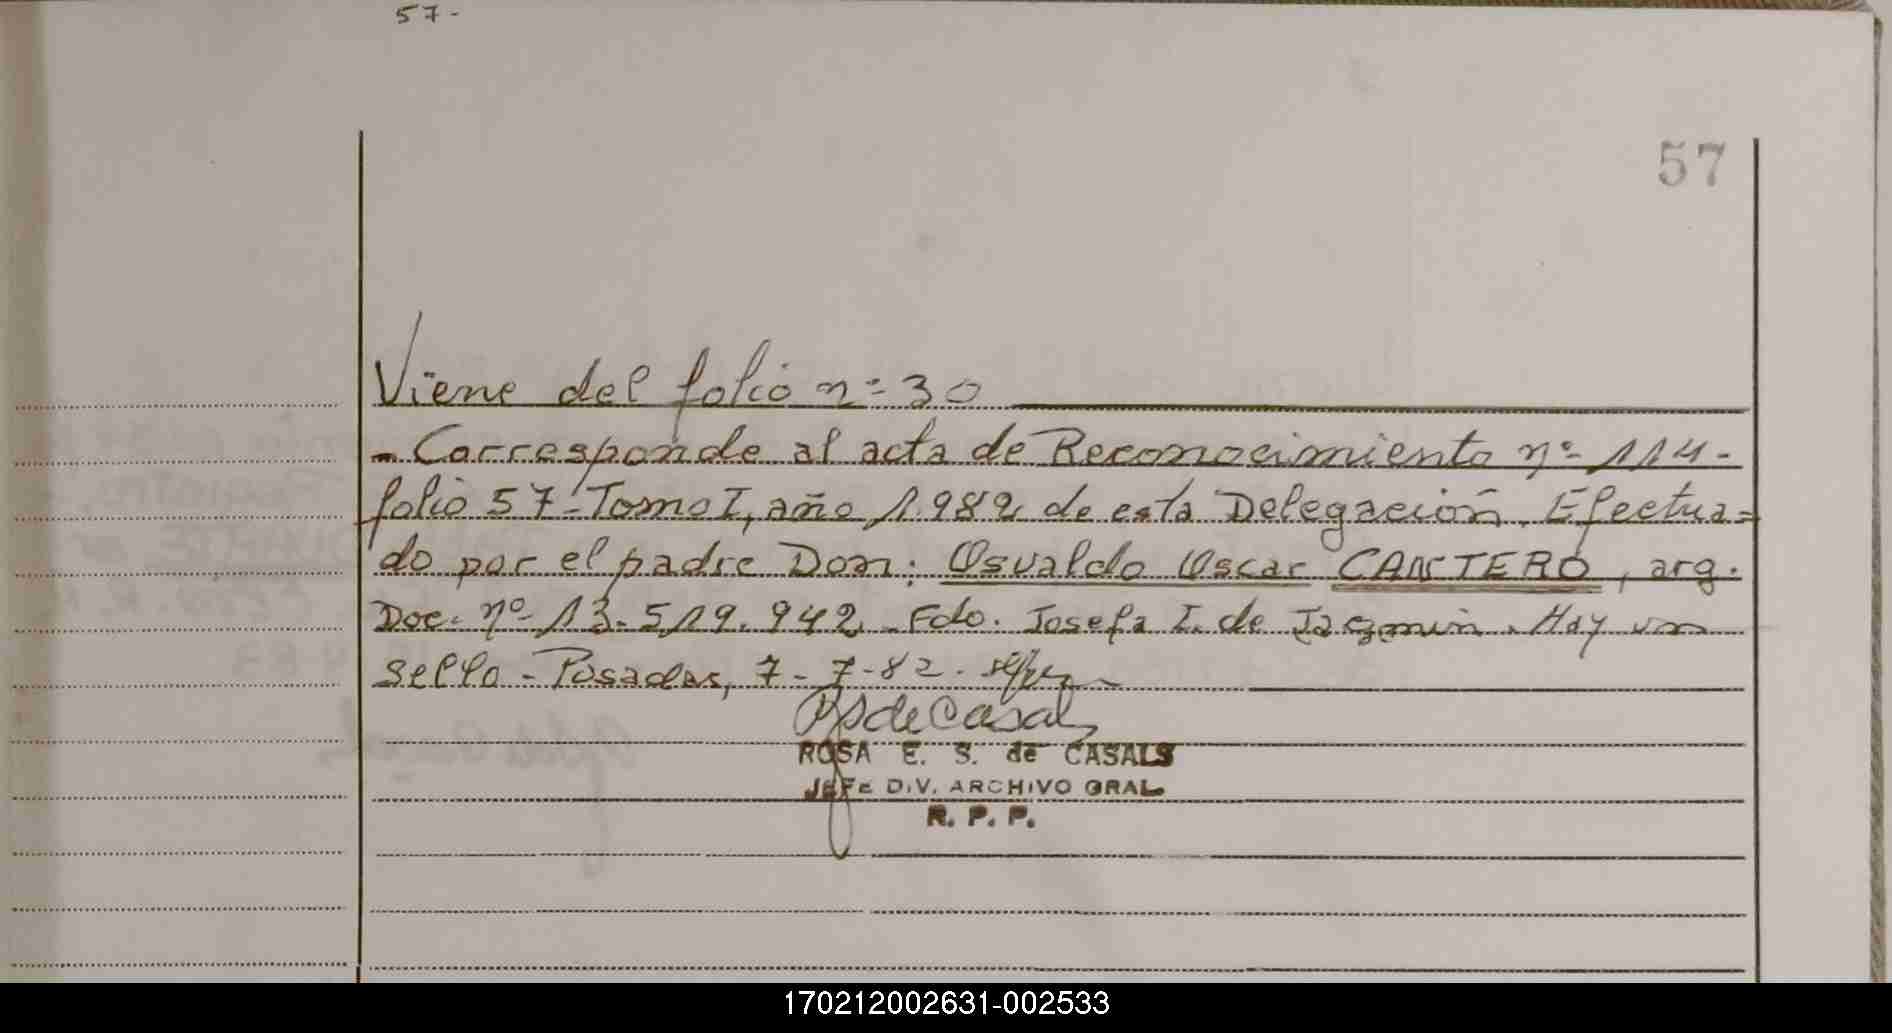 57-
57
Viene del folio n= 30
- Corresponde al acta de Reconocimiento nº 114-
folio 57- Tomo I, año 1.982 de esta Delegación. Efectua=
do por el padre Don: Osvaldo Oscar CANTERO, arg.
Doc. nº 13.519.942. Fdo. Josefa I. de Jazmin. Hay un
sello - Posadas, 7-7-82.
ROSA E. S. de CASALS
JEFE DIV. ARCHIVO GRAL
R. P. P.
170212002631-002533